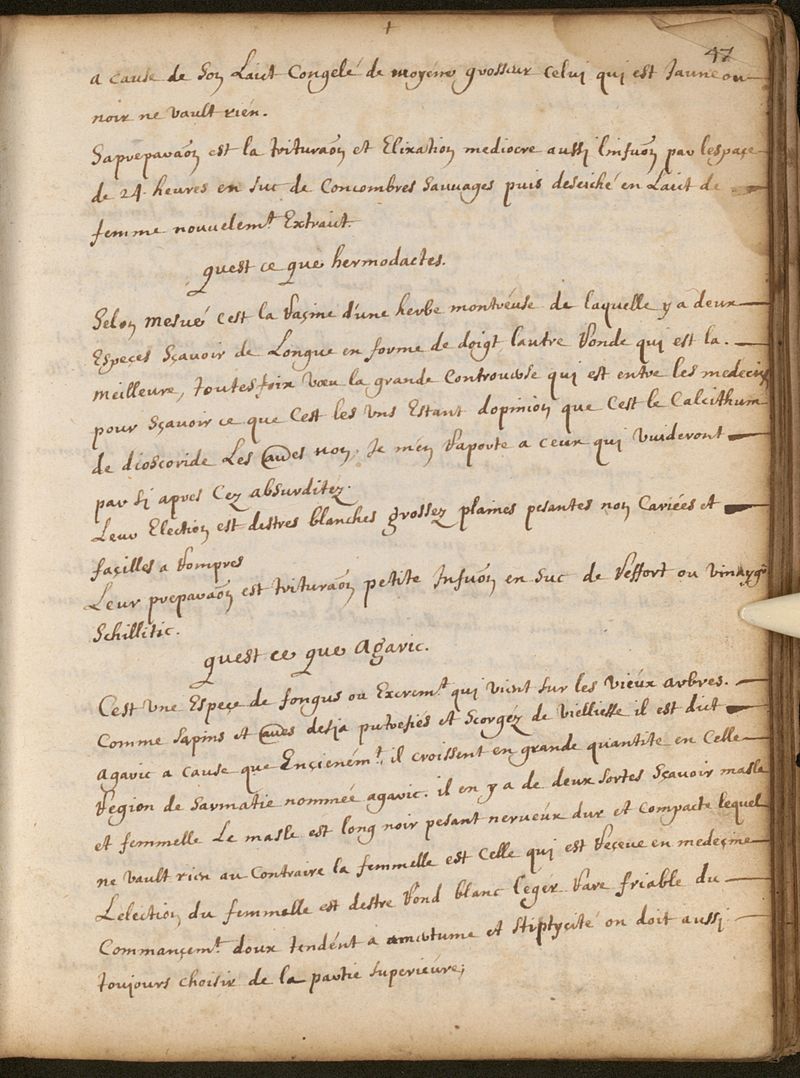 +
47
a cause de son Laict Congelé de moyene grosseur celui qui est Jaune ou
noir ne vault rien.
Sa prepara͠on est la tritura͠on et Elixation mediocre aussi linfu͠on par lespaçe
de 24 heures en suc de Concombres sauuages puis deseiché en Laict de
femme nouuelem.t Extraict.
quest ce que hermodactes.
Selon mesué c'est la Raçine d'une herbe montreuse de laquelle y a deux
Espeçes Sçauoir de Longue en forme de doigt, lautre Ronde qui est la
meilleure, toutes foix veu la grande Controuerse qui est entre les medecins
pour Sçauoir ce que C'est les vns Estant dopinion que C'est le Calcithum
de dioscoride Les au͠es non, Je m'en Raporte a ceux qui Vuideront
par si apres Cez absurditez.
Leur Election est destres blanches grossez plaines pesantes non Cariées et
façilles a Rompres
Leur prepara͠on est tritura͠on petite Infu͠on en Suc de Reffort ou vinaygre
Schillitic.
quest ce que Agaric.
C'est vne Espeçe de fongus ou Excrem.t qui vient sur les vieux arbres.
Comme Sapins et au͠es desja putrefiés et Scorgéz de vielliesse il est dict
Agaric a cause que Ençieném.t, il croissent en grande quantite en Celle
Region de Sarmatie nommée agaric. il en y a de deux sortes Sçauoir masle
et femmelle Le masle est long noir pesant nerueux dur et compacte lequel
ne vault rien au Contraire la femmelle est Celle qui est Reçeue en medeçine
L'election du femmelle est destre Rond blanc leger Rare friable du
Commançem.t doux tendént a amertume et stiptycité on doit aussi
toujours choisir de la partie superieure;